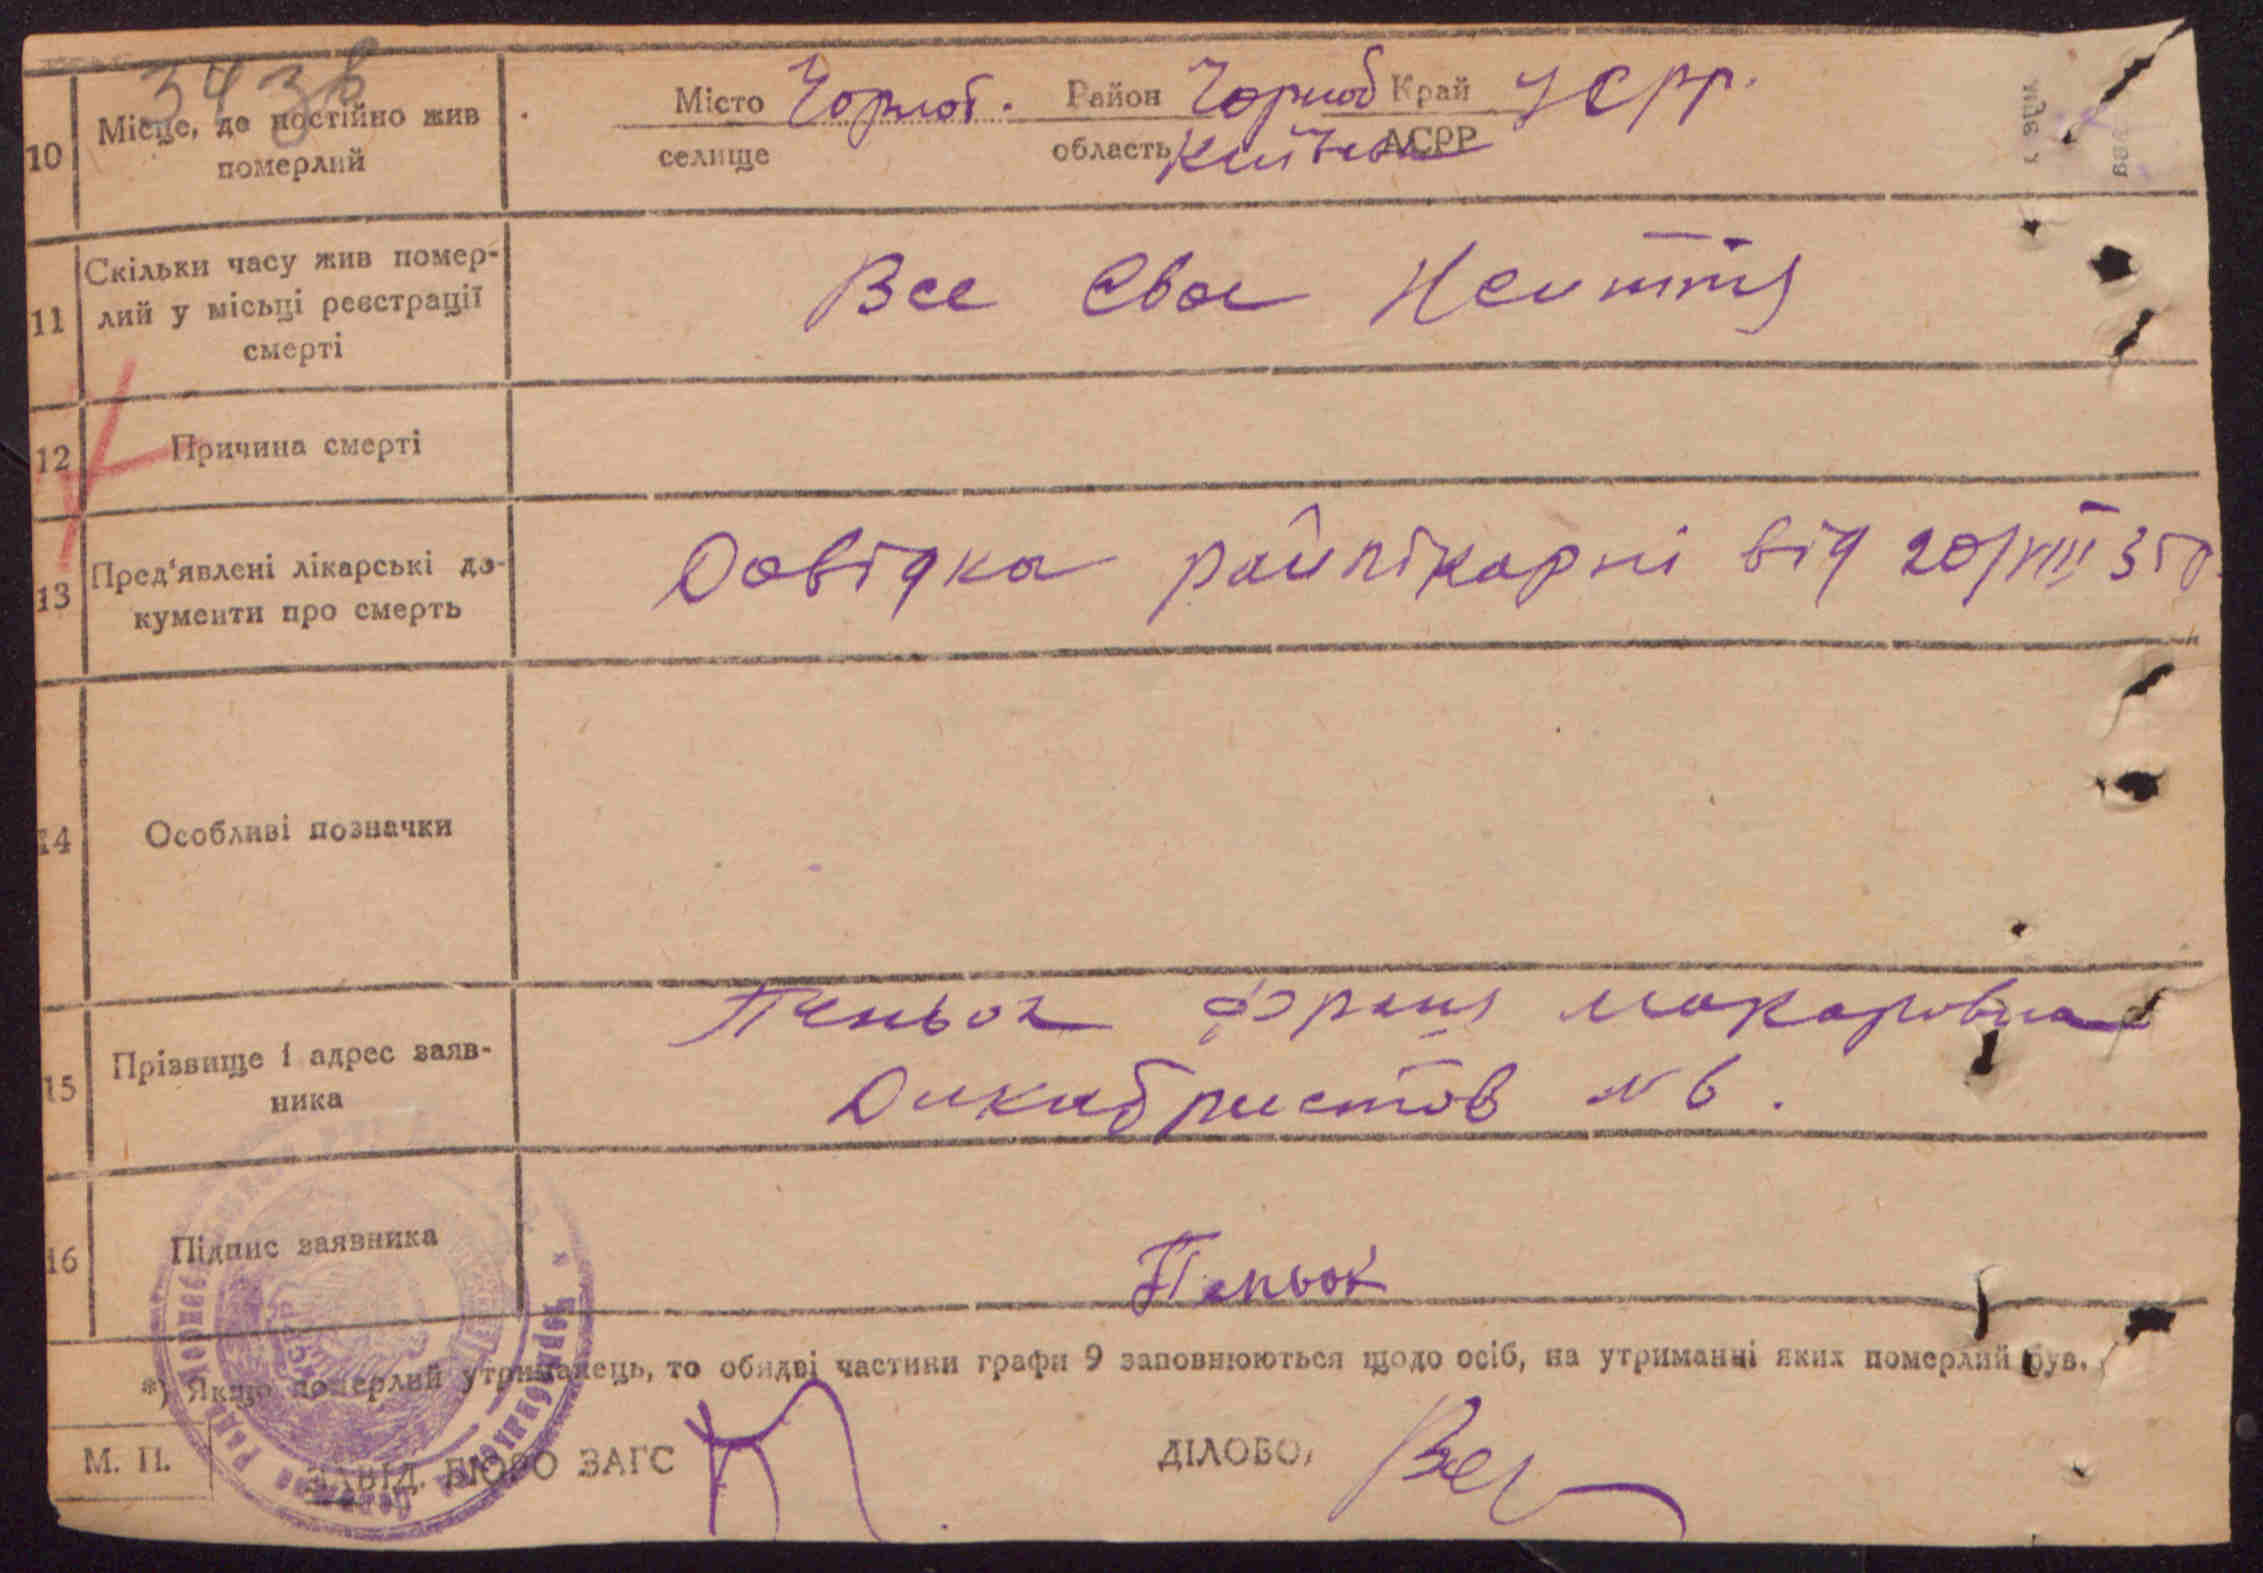 343в
10 Місце, де постійно жив Місто Чорноб. Район Чорноб Край УСРР.
померлий селище область Київськ АСРР
11 Скільки часу жив помер-
лий у місьці реєстрації Все Своє Життя
смерті
12 Причина смерті
13 Пред'явлені лікарські до- Довідка райлікарні від 20/VIII 35р.
кументи про смерть
14 Особливі позначки
15 Прізвище і адрес заяв- Пеньок Макаровна
ника Дикабристов №6.
16 Підпис заявника Пеньок
*) Якщо померлий утриманець, то обидві частини графи 9 заповнюються щодо осіб, на утриманні яких померлий був.
М. П. ЗАВІД. БЮРО ЗАГС ДІЛОВО,